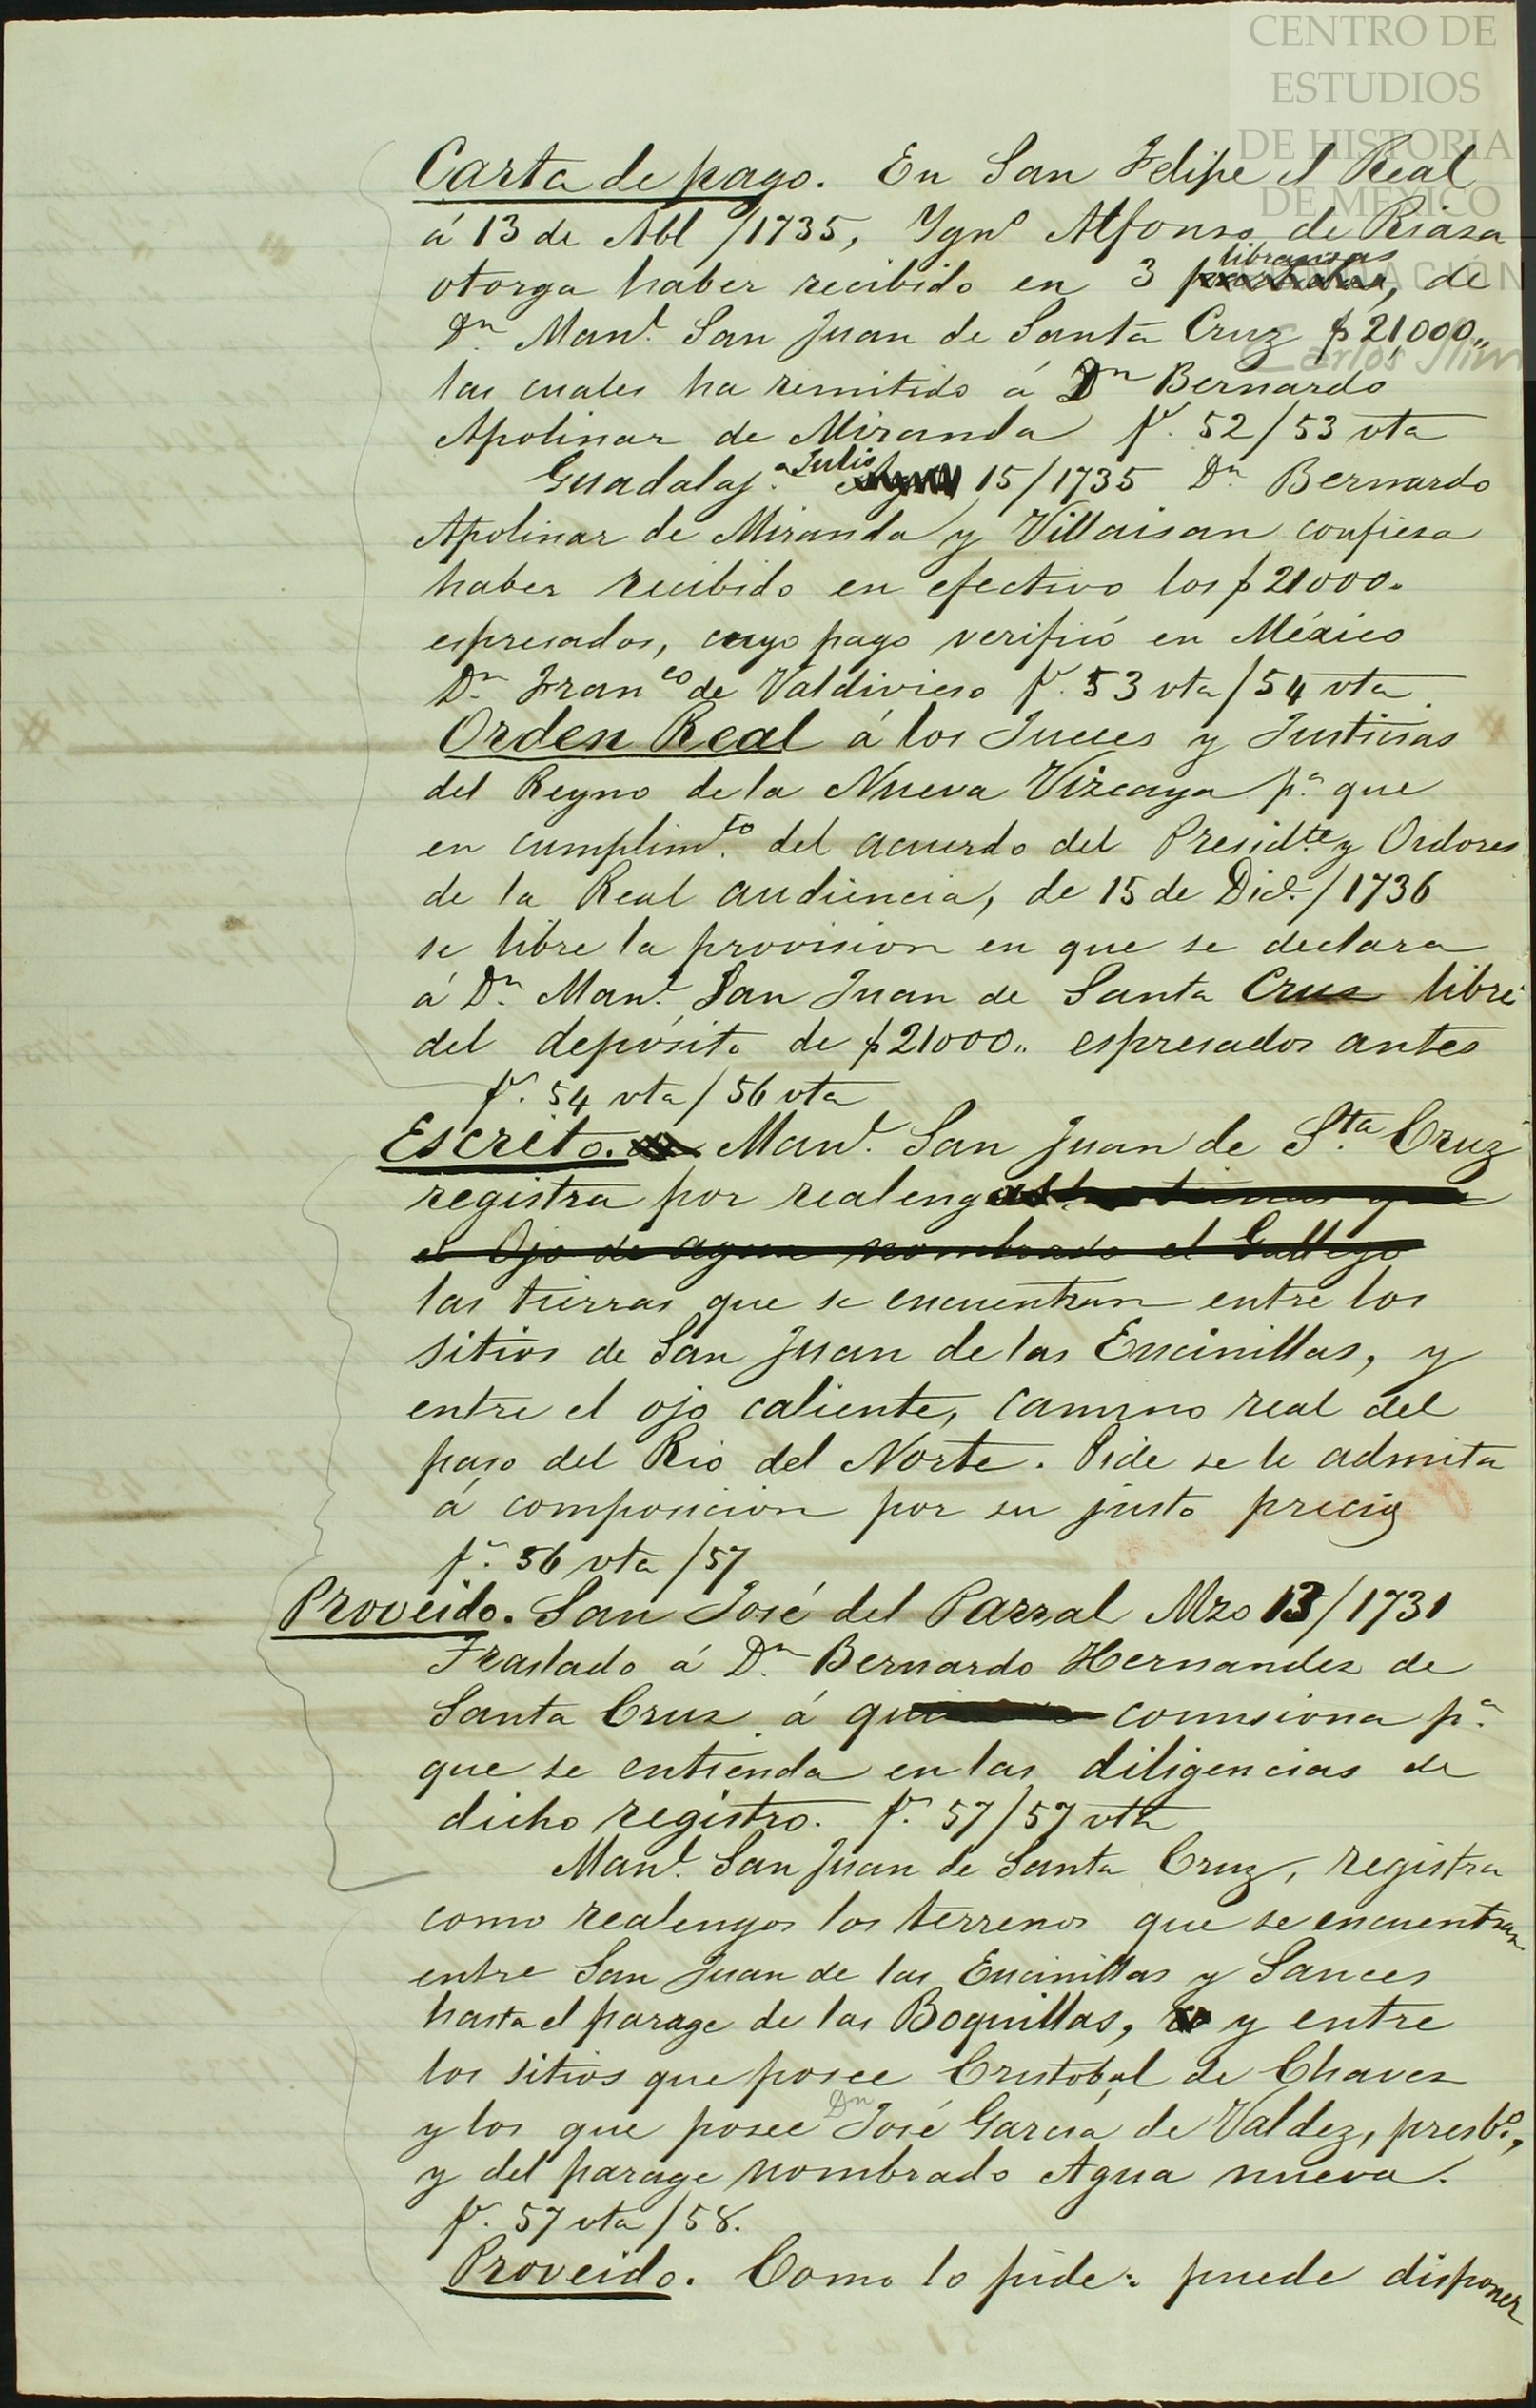 CENTRO DE
ESTUDIOS
DE HISTORIA
DE MÉXICO
FUNDACIÓN
Carlos Slim
Carta de pago. En San Felipe el Real
á 13 de Abl /1735, Ygnº Alfonso de Riaza
otorga haber recibido en 3 libranzas, de
Dn Manl. San Juan de Santa Cruz $ 21,000,,
las cuales ha remitido á Dn Bernardo
Apolinar de Miranda f. 52/53 vta
Guadalaj.a Julio 15/1735 Dn Bernardo
Apolinar de Miranda y Villaisan confiesa
haber recibido en efectivo los $ 21000.
espresados, cuyo pago verificó en México
Dn Franco de Valdivieso f. 53 vta/54 vta.
Orden Real á los Jueces y Justicias
del Reyno de la Nueva Vizcaya p.a que
en cumplimto. del acuerdo del Presidte y Oidores
de la Real audiencia, de 15 de Dice./1736
se libre la provision en que se declara
á Dn Manl. San Juan de Santa Cruz libre
del depósito de $ 21000,, espresados antes
f. 54 vta/56 vta
Escrito. Manl. San Juan de Sta Cruz
registra por realengas las tierras que
el Ojo de agua nombrado el Gallego
las tierras que se encuentran entre los
sitios de San Juan de las Encinillas, y
entre el ojo caliente, camino real del
paso del Rio del Norte. Pide se le admita
á composicion por su justo precio
f. 56 vta/57
Proveido. San José del Parral Mzo 13/1731
Traslado á Dn Bernardo Hernandez de
Santa Cruz á comisiona p.a
que se entienda en las diligencias de
dicho registro. f. 57/57 vta
Manl. San Juan de Santa Cruz, registra
como realengos los terrenos que se encuentran
entre San Juan de las Encinillas y Sauces
hasta el parage de las Boquillas, y entre
los sitios que posee Cristobal de Chavez
y los que posee Dn José Garcia de Valdez, presbº.,
y del parage nombrado Agua nueva.
f. 57 vta/58.
Proveido. Como lo pide: puede disponer